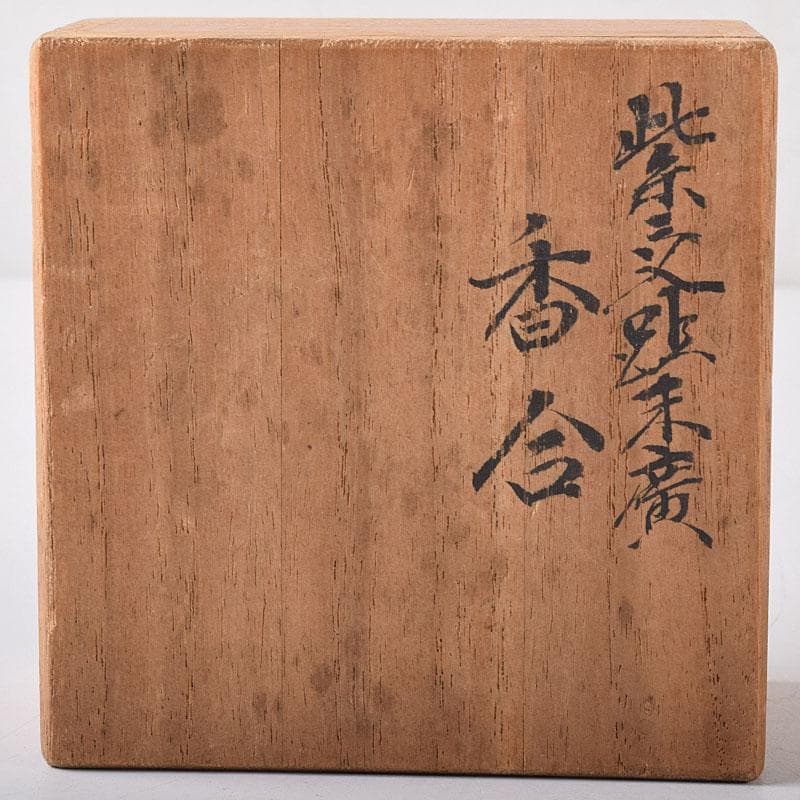 紫交趾末廣
香合